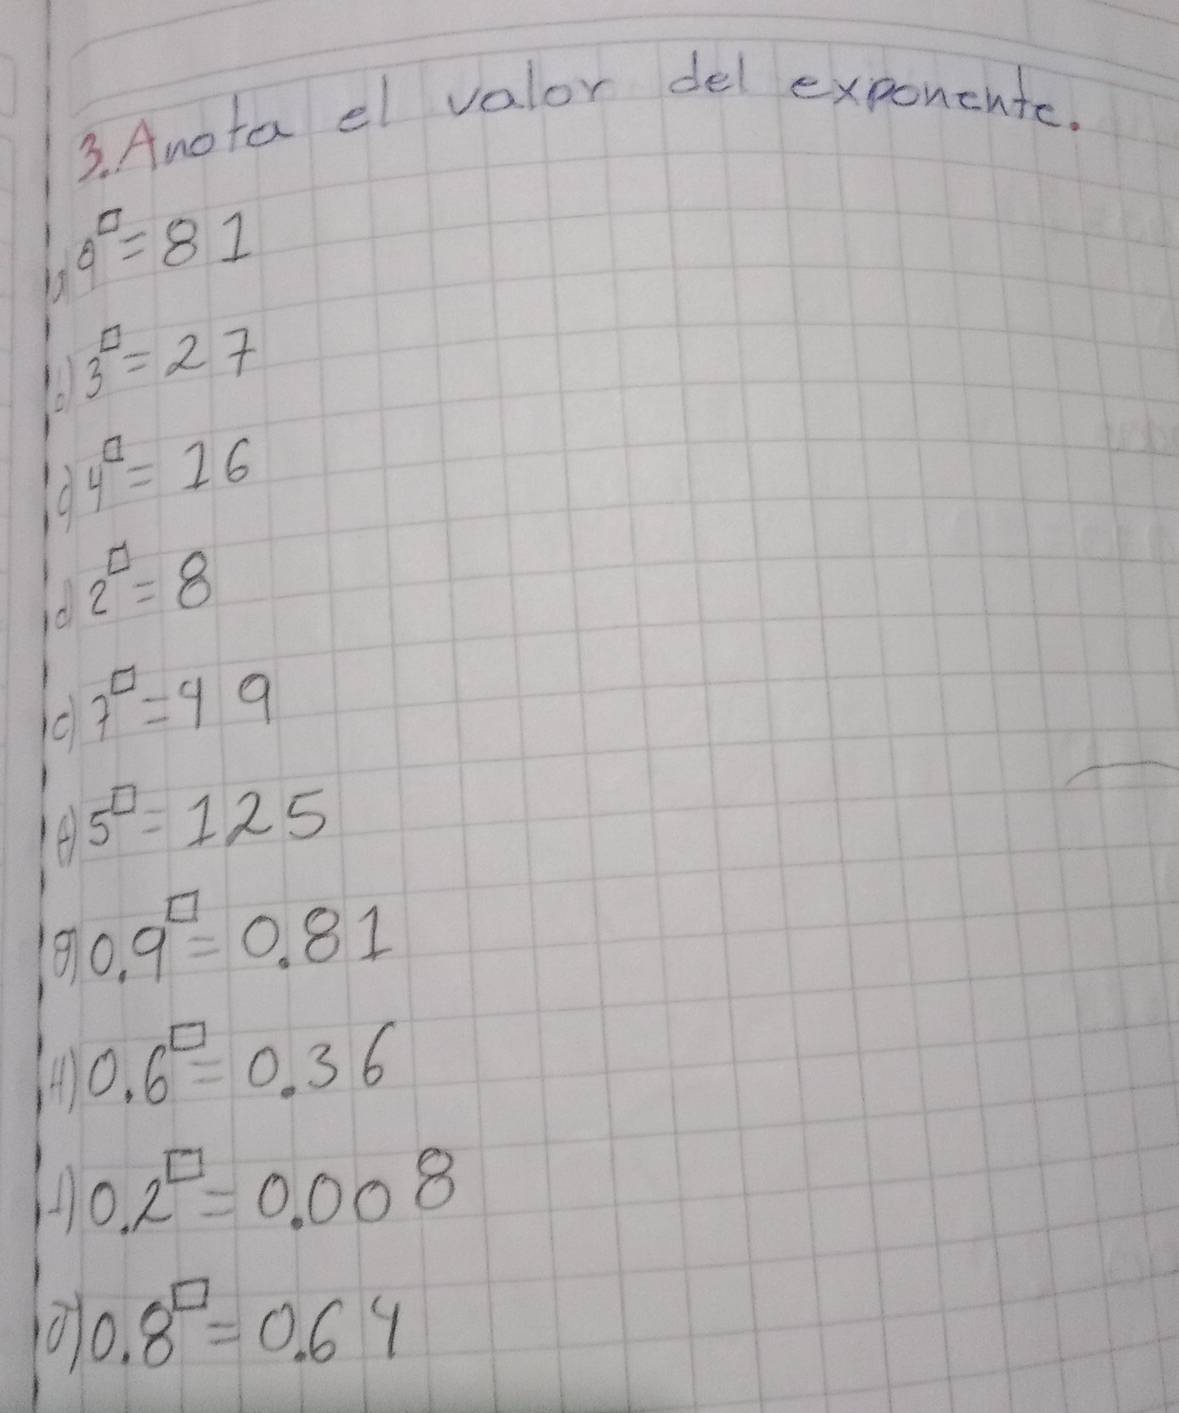 3. Anota el valor del exponente.
a) 9^□ = 81
b) 3^□ = 27
c) 4^□ = 16
d) 2^□ = 8
e) 7^□ = 49
f) 5^□ = 125
g) 0.9^□ = 0.81
H) 0.6^□ = 0.36
I) 0.2^□ = 0.008
J) 0.8^□ = 0.64